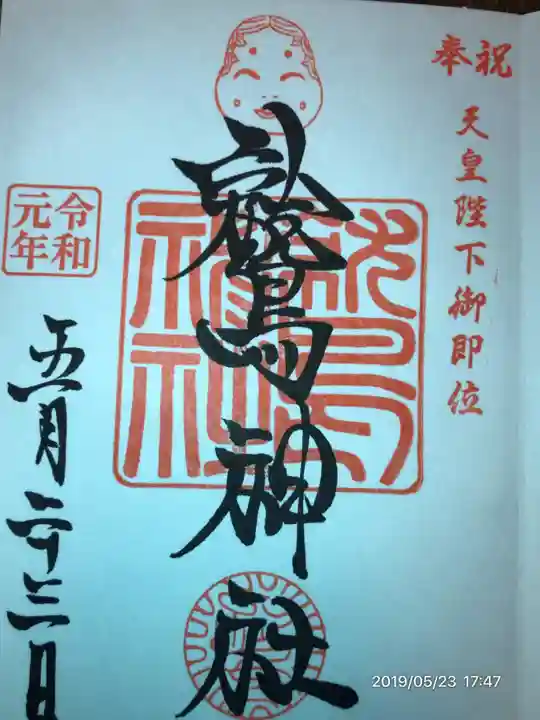 奉祝
天皇陛下御即位
鷲神社
令和
元年
五月二十三日
2019/05/23 17:47